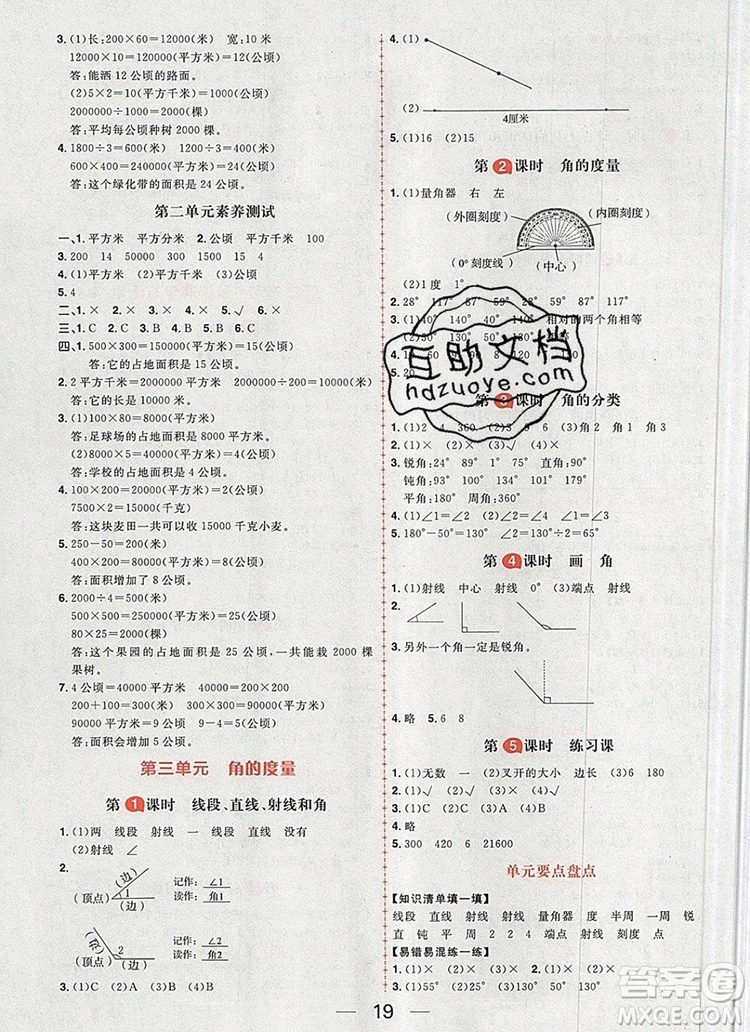 3. (1)长:200×60=12000(米)　宽:10米
12000×10=120000(平方米)=12(公顷)
答:能洒 12公顷的路面。
(2)5×2=10(平方千米)=1000(公顷)
2000000÷1000=2000(棵)
答:平均每公顷种树 2000 棵。
4. 1800÷3=600(米)　1200÷3=400(米)
600×400=240000(平方米)=24(公顷)
答:这个绿化带的面积是 24 公顷。
第二单元素养测试
一、1. 平方千米　平方米　2. 公顷　平方千米　100
3. 200　14　50000　300　1500　15
4. (1)公顷　(2)平方千米　(3)平方米
5. 4
二、1. ×　2. ×　3. ×　4. ×　5. √　6. ×
三、1. C　2. A　3. B　4. C　5. C　6. C
四、1. 500×300=150000(平方米)=15(公顷)
答:它的占地面积是 15 公顷。
2. 2 平方千米=2000000 平方米　2000000÷1000=2000(米)
答:它的长是 2000 米。
3. (1)100×80=8000(平方米)
答:足球场的占地面积是 8000 平方米。
(2)8000×5=40000(平方米)=4(公顷)
答:学校的占地面积是 4 公顷。
4. 100×200=20000(平方米)=2(公顷)
7500×2=15000(千克)
答:这块麦田一共可以收 15000 千克小麦。
5. 250-50=200(米)
400×200=80000(平方米)=8(公顷)
答:面积增加了 8 公顷。
6. 2000÷4=500(米)
500×500=250000(平方米)=25(公顷)
80×25=2000(棵)
答:这个果园的占地面积是 25 公顷,一共能栽 2000 棵
果树。
7. 4 公顷=40000 平方米　40000÷200=200(米)
200+100=300(米)　300×300=90000(平方米)
90000 平方米=9 公顷　9-4=5(公顷)
答:面积增加了 5 公顷。
第三单元　角的度量
第1课时　线段、直线、射线和角
1. (1)两　线段　射线　一　线段　直线　没有
(2)射线　∠
2.
(边)
(顶点) 1 (边)
记作: ∠1
读作: 角1
(边)
(顶点) 2 (边)
记作: ∠2
读作: 角2
3. (1)C　(2)A　(3)B　(4)D
4. (1)
(2)
4厘米
5. (1)16　(2)15
第2课时　角的度量
1. (1)量角器　右　左
(外圈刻度)　(内圈刻度)
(0°刻度线)　(中心)
(2)1度　1°
2. 28°　117°　87°　59°
3. (1)40°　140°　相对的两个角相等
5. 20
互助文档
hdzuoye.com
第3课时　角的分类
1. (1)2　4　360　(3)角2　角1　角3
2. (1)×　(2)×　(3)√　(4)×
3. 锐角:24°　89°　1°　75°
钝角:91°　139°　100°
平角:180°　周角:360°
4. (1)∠1=∠2　(2)∠1=∠3
5. 180°-50°-90°=40°
第4课时　画　角
1. (1)射线　中心　射线　0°　(3)端点　射线
2.
3. 另外一个角一定是锐角。
4. 略　5. 6　8
第5课时　练习课
1. (1)无数　一　(2)叉开的大小　边长　(3)6　180
2. (1)×　(2)×　(3)×　(4)×
3. (1)C　(2)C　(3)A　(4)B
4. 略
5. 300　20　6　420　21600
单元要点盘点
【知识清单填一填】
线段　直线　射线　射线　量角器　度　半周　一周　锐
直　钝　平　周　2　2　4　端点　射线　刻度　点
【易错易混练一练】
1. (1)×　(2)×　(3)×　(4)×
3. (1)55°　(2)25°
19
答案圈
MXQE.COM